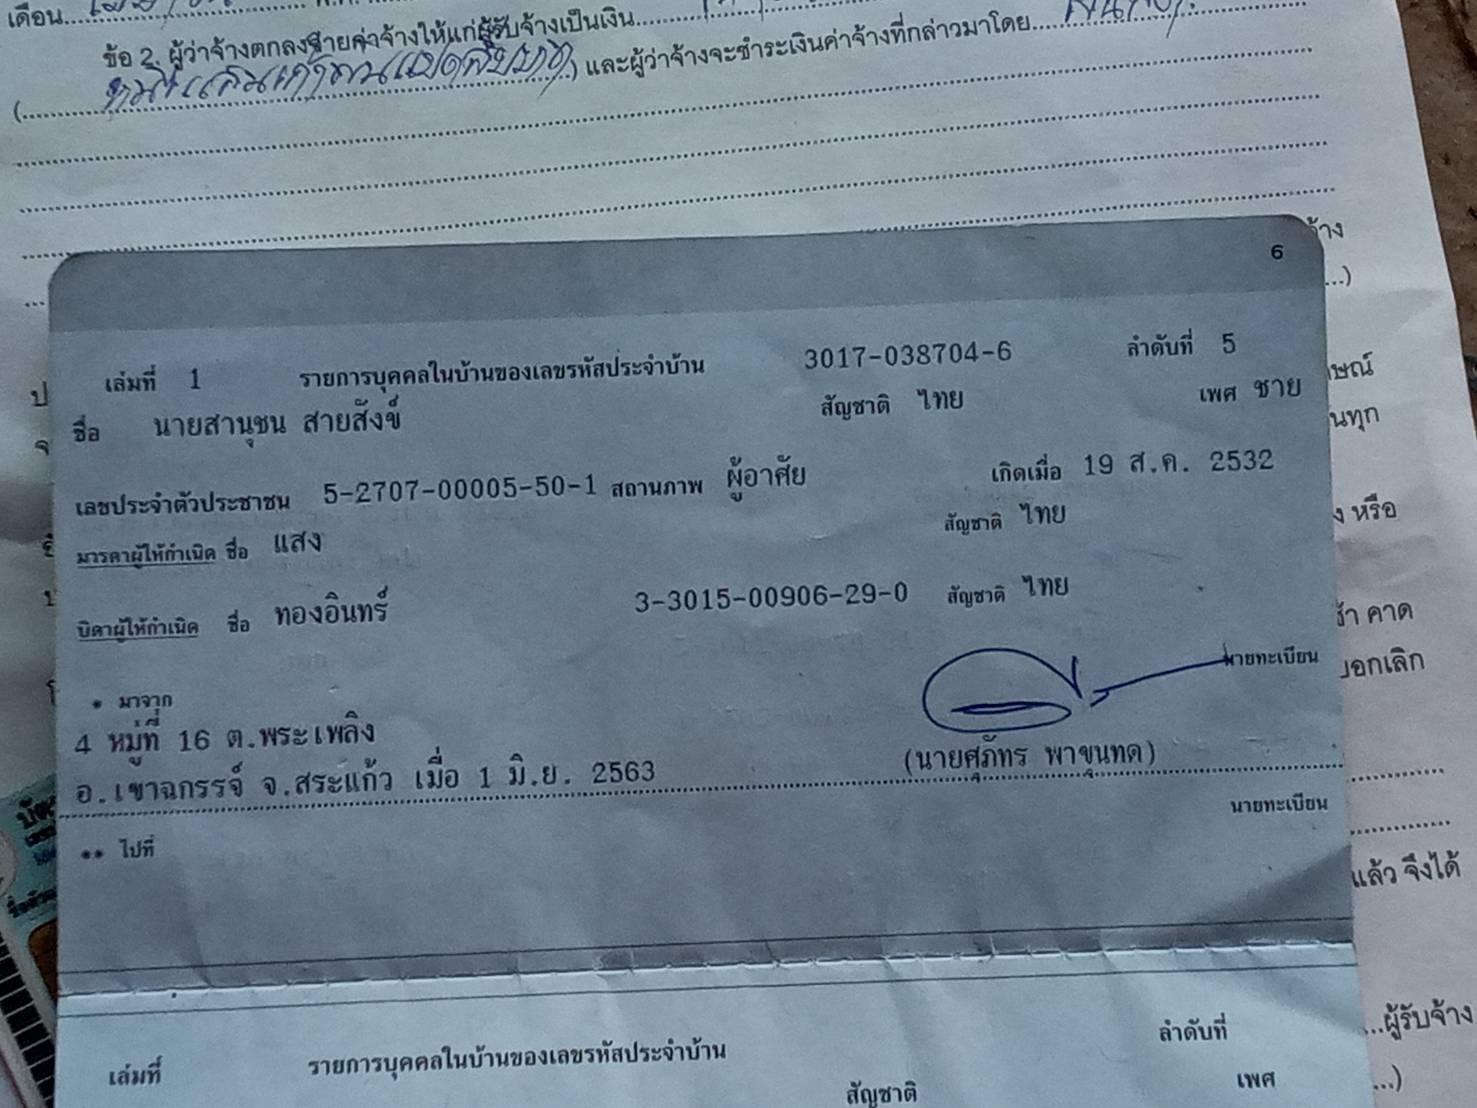 เดือน
ข้อ 2. ผู้ว่าจ้างตกลงจ่ายค่าจ้างให้แก่ผู้รับจ้างเป็นเงิน
( ) และผู้ว่าจ้างจะชำระเงินค่าจ้างที่กล่าวมาโดย
6
เล่มที่ 1 รายการบุคคลในบ้านของเลขรหัสประจำบ้าน 3017-038704-6 ลำดับที่ 5
ชื่อ นายสานุชน สายสังข์ สัญชาติ ไทย เพศ ชาย
เลขประจำตัวประชาชน 5-2707-00005-50-1 สถานภาพ ผู้อาศัย เกิดเมื่อ 19 ส.ค. 2532
มารดาผู้ให้กำเนิด ชื่อ แสง สัญชาติ ไทย
บิดาผู้ให้กำเนิด ชื่อ ทองอินทร์ 3-3015-00906-29-0 สัญชาติ ไทย
* มาจาก นายทะเบียน
4 หมู่ที่ 16 ต.พระเพลิง
อ.เขาฉกรรจ์ จ.สระแก้ว เมื่อ 1 มิ.ย. 2563 (นายศุภัทร พาขุนทด)
** ไปที่ นายทะเบียน
เล่มที่ รายการบุคคลในบ้านของเลขรหัสประจำบ้าน ลำดับที่
สัญชาติ เพศ
หรือ
คาด
บอกเลิก
แล้ว จึงได้
ผู้รับจ้าง
...)